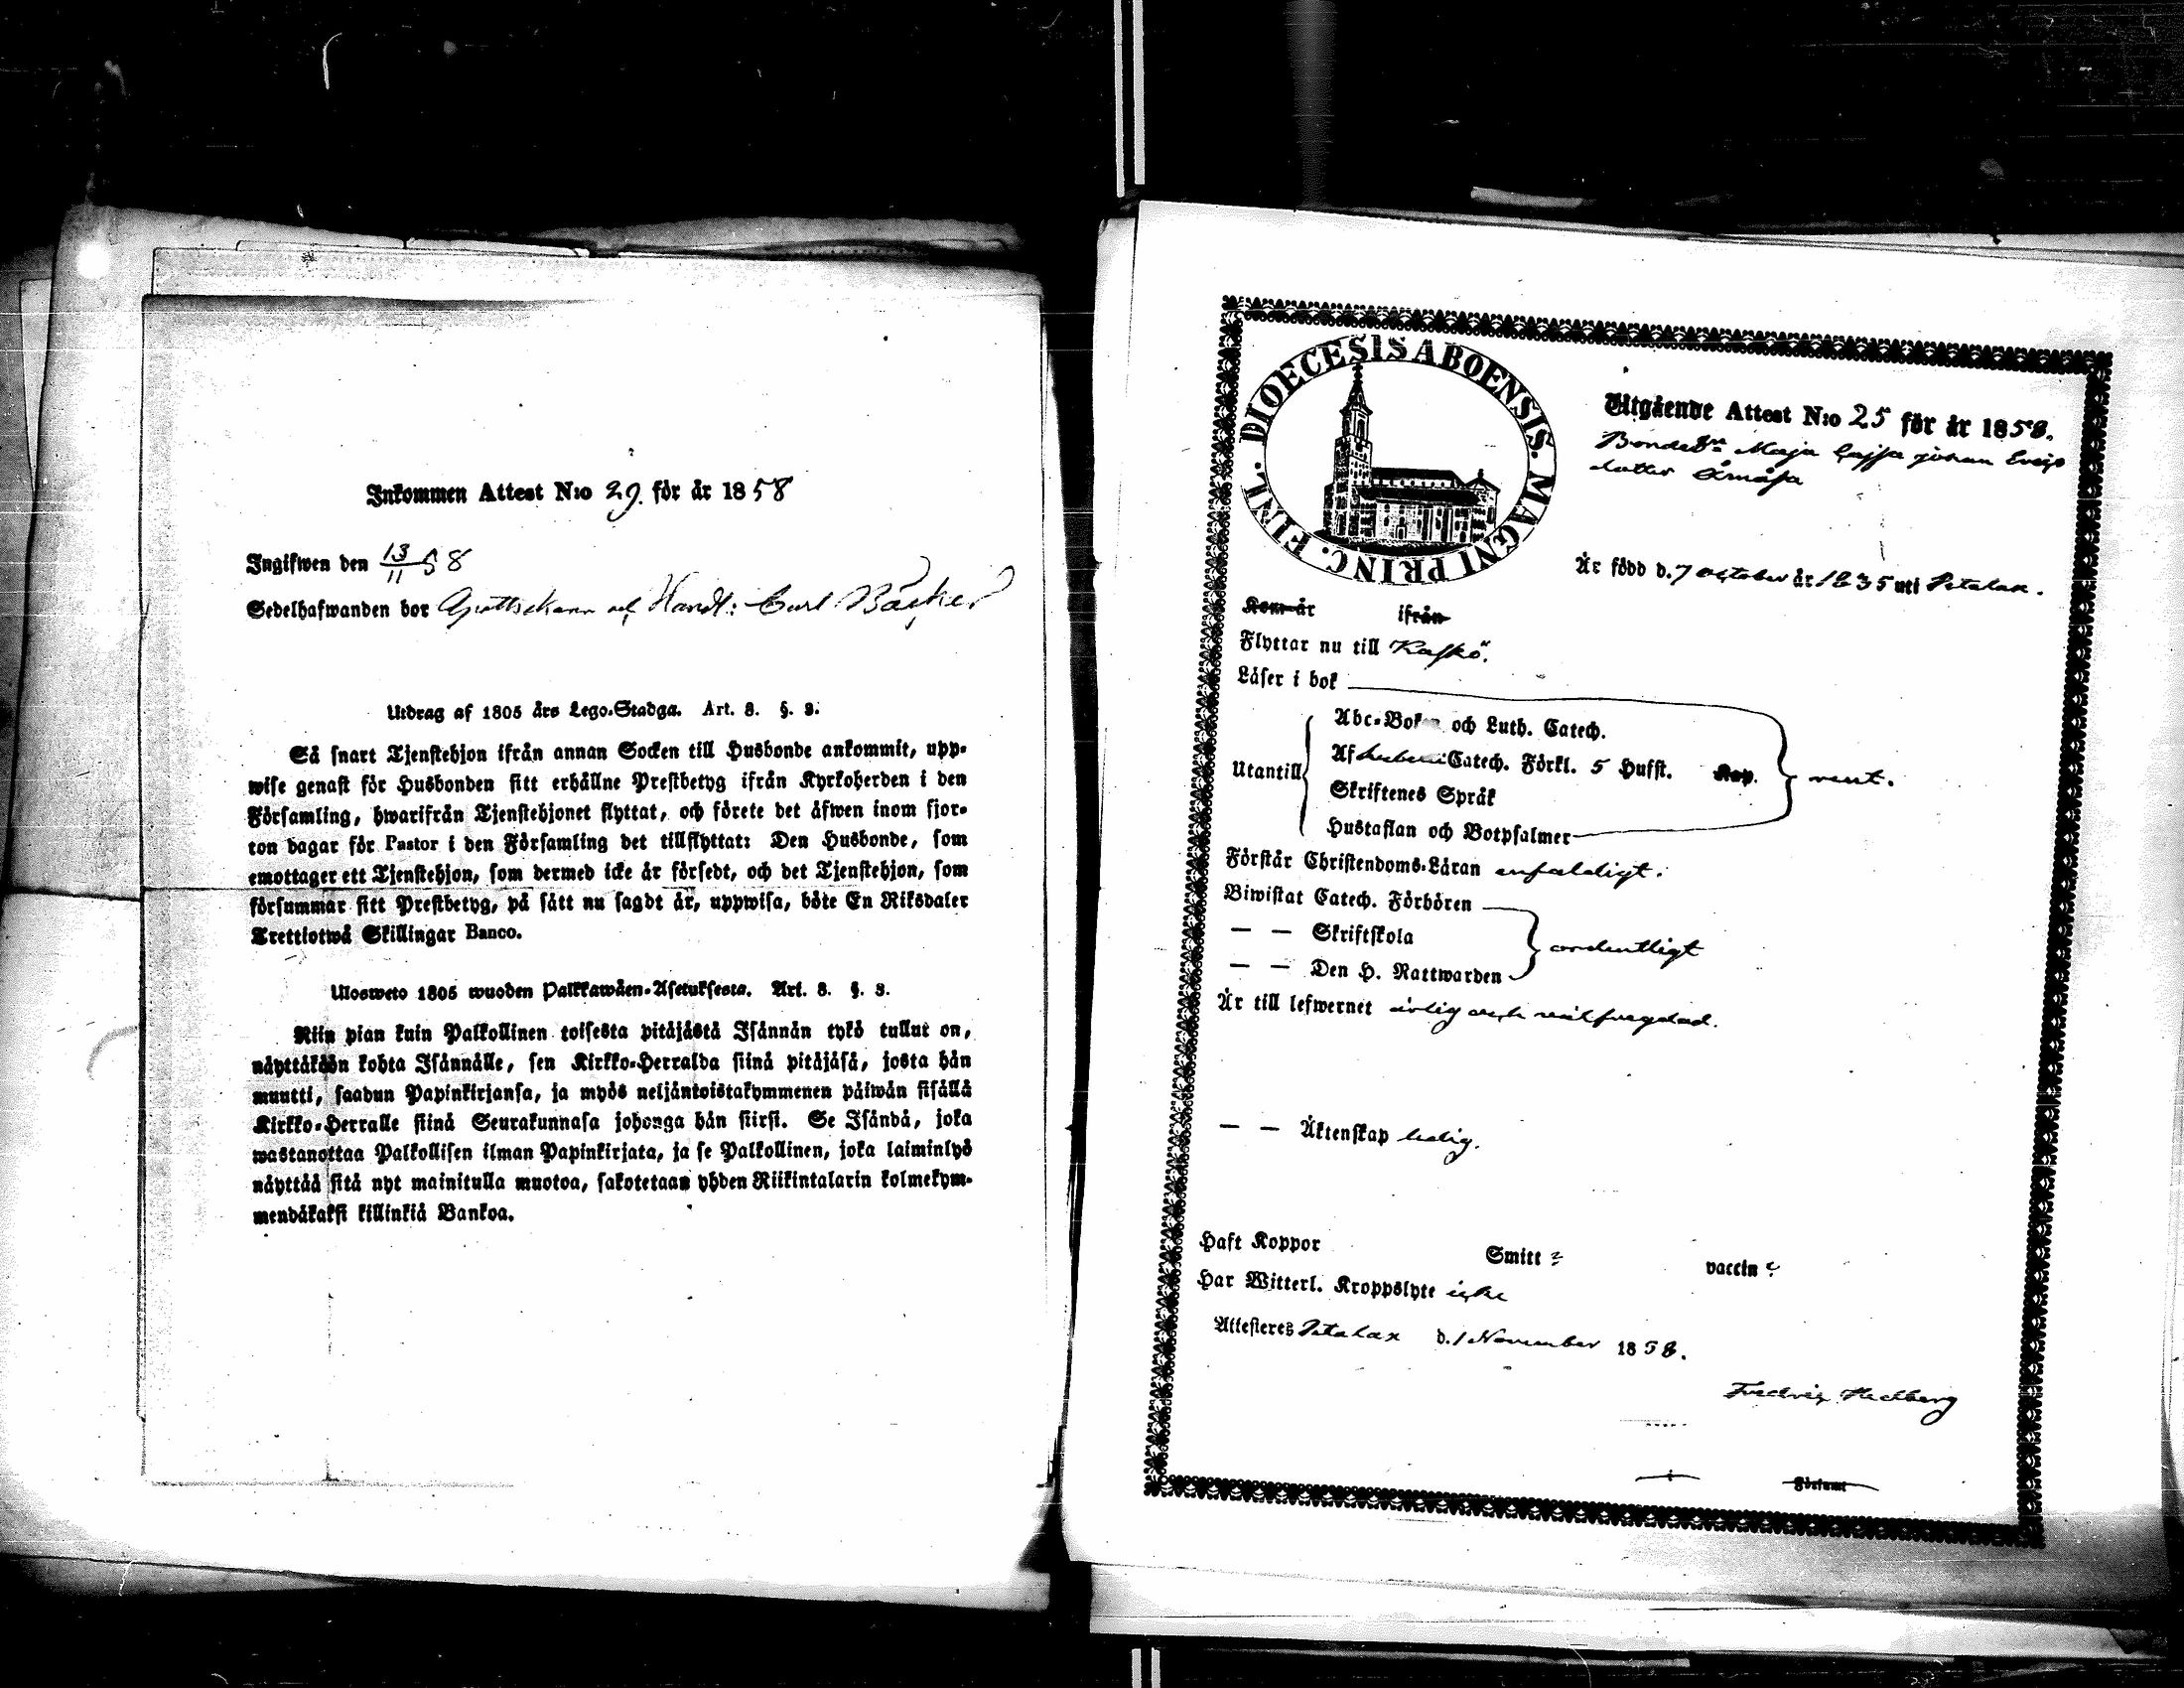 Inkommen Attest N:o 29. för år 1858
Ingifwen den 13/11 58
Sedelhafwanden bor Handl: Carl Bäcker
Utdrag af 1805 års Lego-Stadga. Art. 8. §. 3.
Så snart Tjenstehjon ifrån annan Socken till Husbonde ankommit, upp-
wise genast för Husbonden sitt erhållne Prestbetyg ifrån Kyrkoherden i den
Församling, hwarifrån Tjenstehjonet flyttat, och förete det äfwen inom fjor-
ton dagar för Pastor i den Församling det tillflyttat: Den Husbonde, som
emottager ett Tjenstehjon, som dermed icke är försedt, och det Tjenstehjon, som
försummar sitt Prestbetyg, på sätt nu sagdt är, uppwisa, böte En Riksdaler
Trettiotwå Skillingar Banco.
Ulosweto 1805 wuoden Palkkawäen-Asetuksesta. Art. 8. §. 3.
Niin pian kuin Palkollinen toisesta pitäjästä Isännän tykö tullut on,
näyttäköön kohta Isännälle, sen Kirkko-Herralda siinä pitäjäsä, josta hän
muutti, saadun Papinkirjansa, ja myös neljäntoistakymmenen päiwän sisällä
Kirkko-Herralle siinä Seurakunnasa johonga hän siirsi. Se Isändä, joka
wastanottaa Palkollisen ilman Papinkirjata, ja se Palkollinen, joka laiminlyö
näyttää sitä nyt mainitulla muotoa, sakotetaan yhden Riikintalarin kolmekym-
mendäkaksi killinkiä Bankoa.
DIOECESIS ABOENSIS. MAGNI PRINC. FINL.
Utgående Attest N:o 25 för år 1858.
Bonded:r Maja Cajsa Johan Ersds
dotter
Är född d. 7 October år 1835 uti Petalax.
Kom år ifrån
Flyttar nu till Kaskö.
Läser i bok
Abc-Boken och Luth. Catech.
Utantill Af Catech. Förkl. 5 Hufst. Kap. rent.
Skriftenes Språk
Hustaflan och Botpsalmer
Förstår Christendoms-Läran enfaldigt.
Biwistat Catech. Förhören
— — Skriftskola ordentligt
— — Den H. Nattwarden
Är till lefwernet ärlig och välfrägdad.
— — Äktenskap ledig.
Haft Koppor Smitt ? vaccin ?
Har Witterl. Kroppslyte icke
Attesteres Petalax d. 1 November 1858.
Fredrik Hedberg